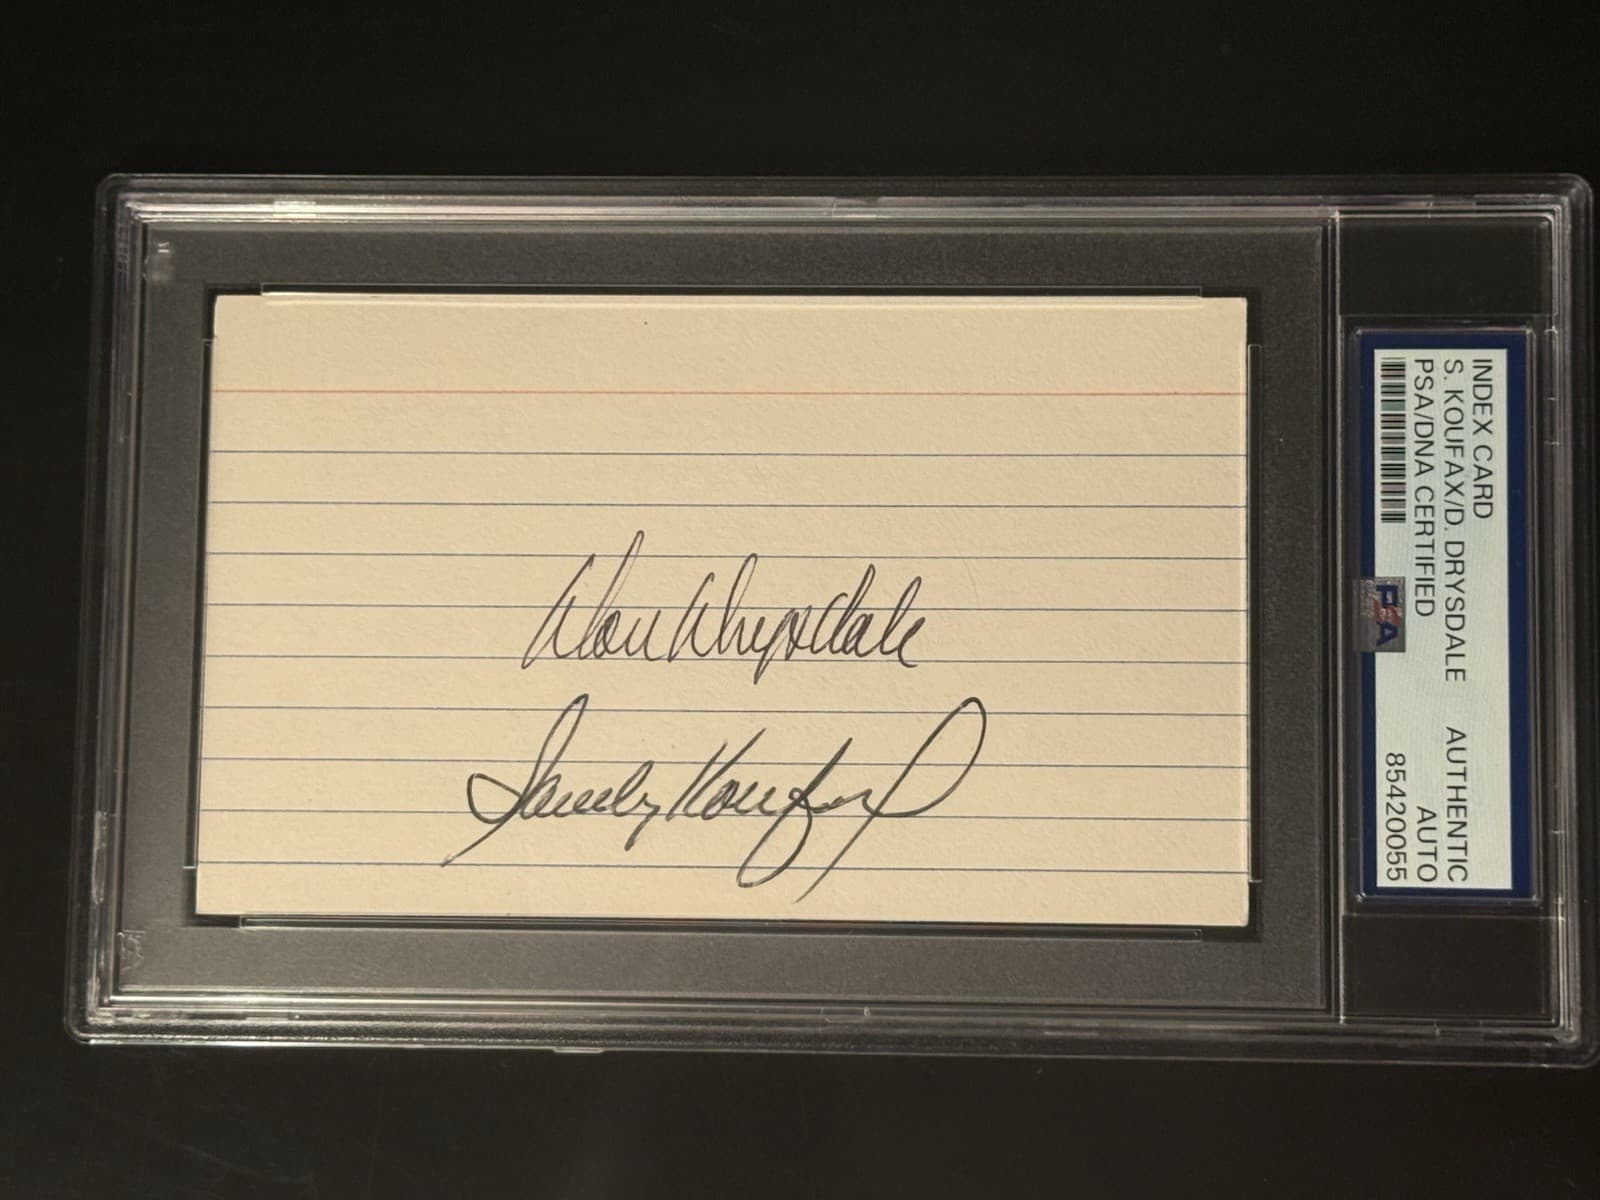 Don Drysdale
Sandy Koufax
INDEX CARD
S. KOUFAX/D. DRYSDALE AUTHENTIC
PSA/DNA CERTIFIED AUTO
85420055
PSA